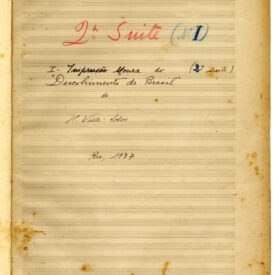 2ª Suite (Nº I)
I - Impressão Moura do (2ª Suite)
"Descobrimento do Brasil"
de
H. Villa-Lobos
Rio, 1937